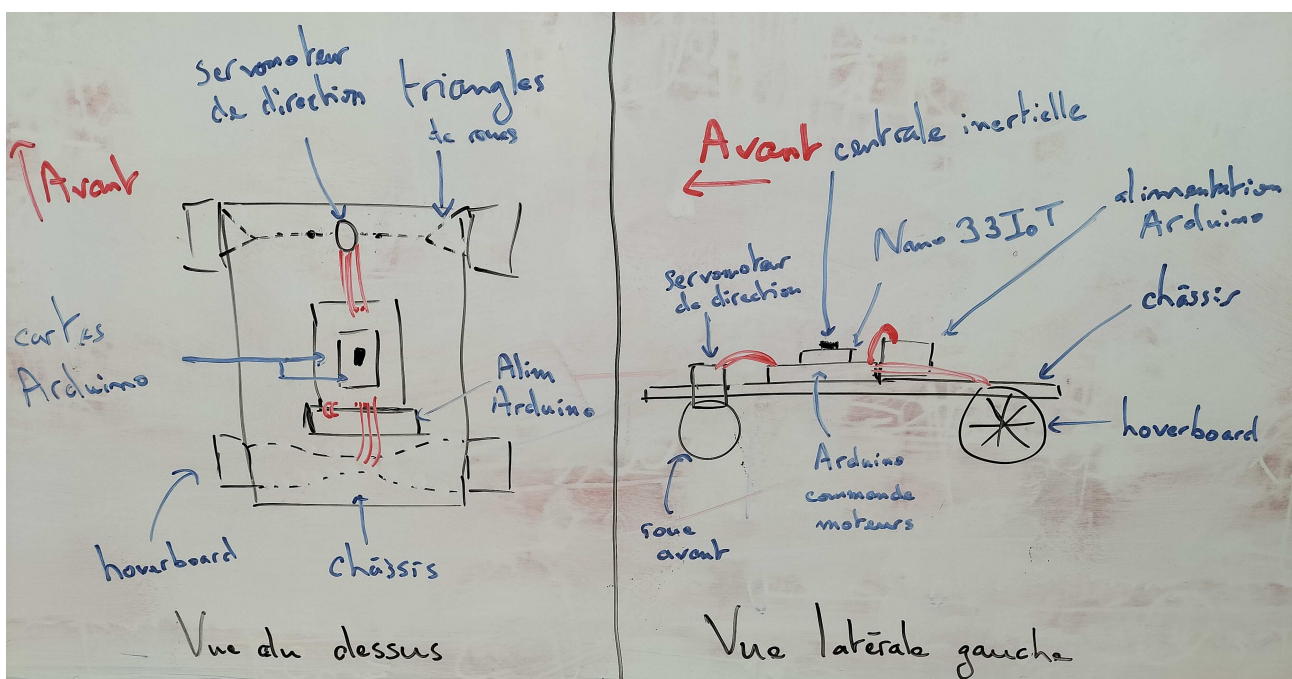 servomoteur
de direction
triangles
de roues
Avant
cartes
Arduino
Alim
Arduino
hoverboard
châssis
Vue du dessus
Avant
centrale inertielle
Nano 33IoT
alimentation
Arduino
servomoteur
de direction
châssis
hoverboard
Arduino
commande
moteurs
roue
avant
Vue latérale gauche